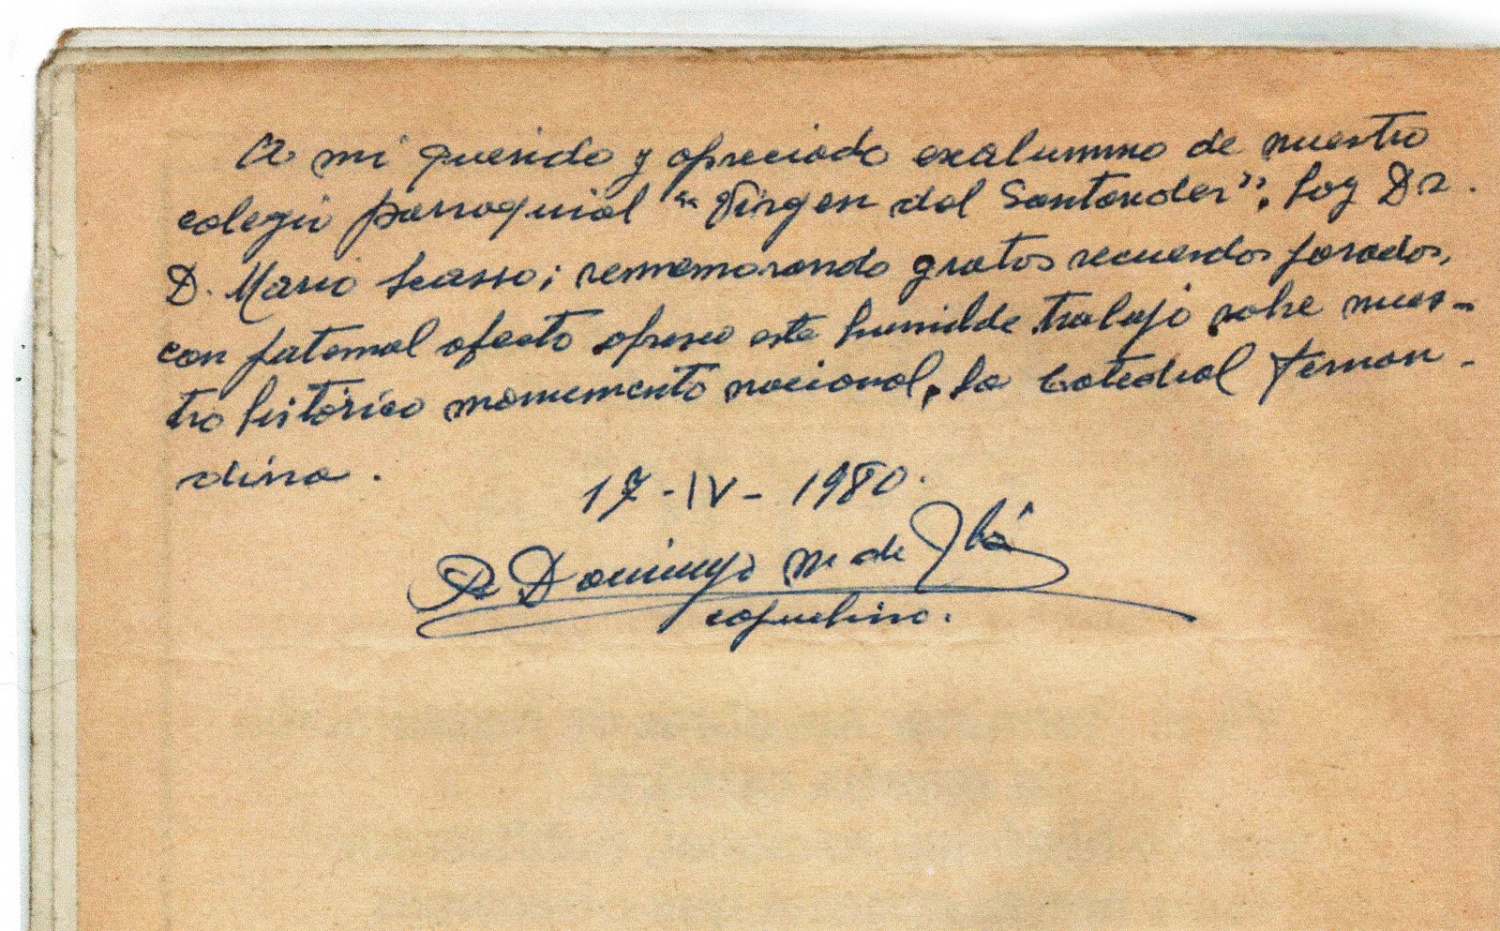 A mi querido y apreciado exalumno de nuestro
colegio parroquial "Virgen del Santander", hoy Dr.
D. Mario Scasso; rememorando gratos recuerdos pasados,
con paternal afecto ofresco este humilde trabajo sobre nues-
tro histórico monumento nacional, la Catedral Fernan-
dina.
17-IV-1980.
P. Domingo M. de
capuchino.